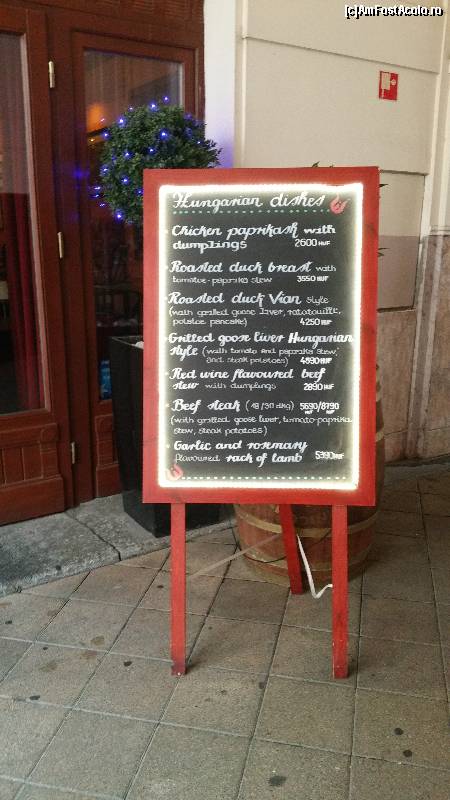 (c)AmFostAcolo.ro
Hungarian dishes
• Chicken paprikash with
dumplings 2600 HUF
• Roasted duck breast with
tomatoe-paprika stew 3550 HUF
• Roasted duck Vian style
(with grilled goose liver, ratatouille,
potatoe pancake) 4250 HUF
• Grilled goose liver Hungarian
style (with tomato and paprika stew,
and steak potatoes) 4890 HUF
• Red wine flavoured beef
stew with dumplings 2890 HUF
• Beef steak (18/30 dkg) 5690/8790
HUF HUF
(with grilled goose liver, tomato-paprika
stew, steak potatoes)
• Garlic and rosemary
flavoured rack of lamb 5390 HUF